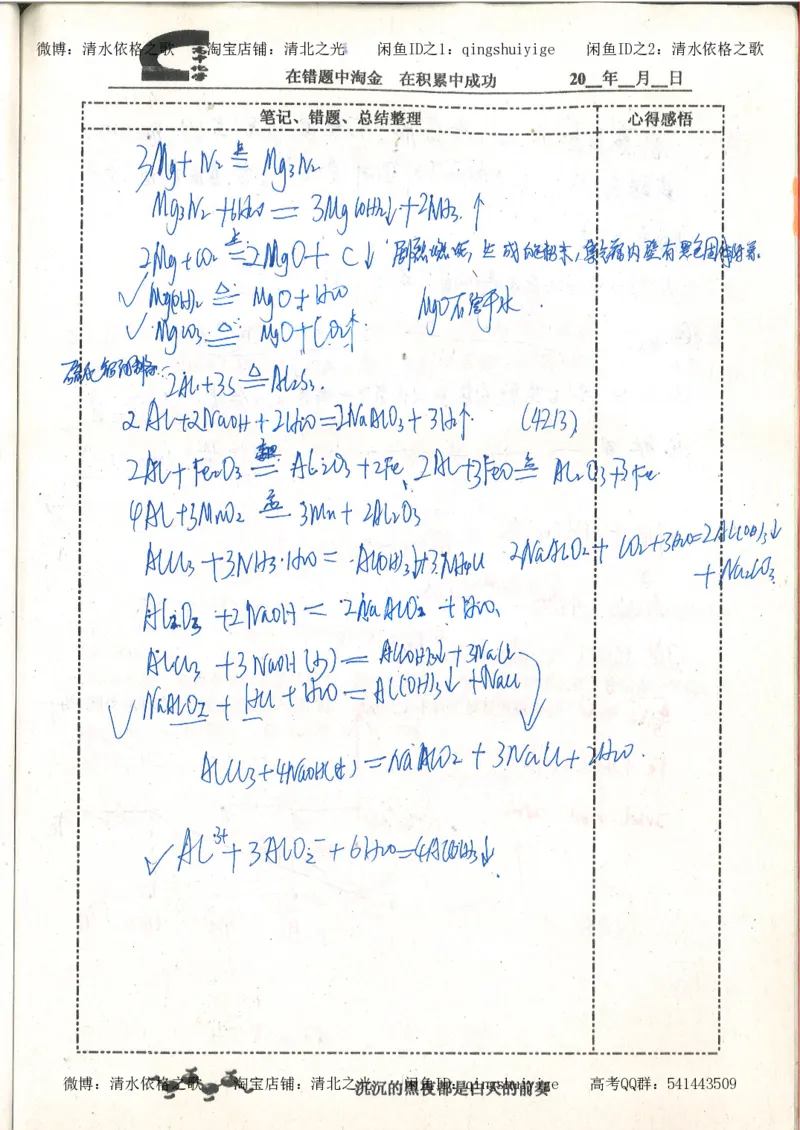 微博：清水依格之歌 淘宝店铺：清北之光 闲鱼ID之1：qingshuiyige 闲鱼ID之2：清水依格之歌
在错题中淘金 在积累中成功 20__年__月__日
笔记、错题、总结整理 心得感悟
3Mg+N₂ =点= Mg₃N₂
Mg₃N₂+6H₂O = 3Mg(OH)₂↓+2NH₃↑
2Mg+CO₂ =点= 2MgO+C↓ 剧烈燃烧，生成白色粉末，集气瓶内壁有黑色固体附着。
✓Mg(OH)₂ =△= MgO+H₂O MgO不溶于水
✓MgCO₃ =△= MgO+CO₂↑
2Al+3S =△= Al₂S₃.
2Al+2NaOH+2H₂O=2NaAlO₃+3H₂↑. (4213)
2Al+Fe₂O₃ =高温= Al₂O₃+2Fe、2Al+3FeO =高温= Al₂O₃+3Fe
4Al+3MnO₂ =高温= 3Mn+2Al₂O₃
AlCl₃+3NH₃·H₂O= Al(OH)₃↓+3NH₄Cl 2NaAlO₂+CO₂+3H₂O=2Al(OH)₃↓
+Na₂CO₃
Al₂O₃+2NaOH=2NaAlO₂+H₂O.
AlCl₃+3NaOH(少)=Al(OH)₃↓+3NaCl
✓NaAlO₂+HCl+H₂O=Al(OH)₃↓+NaCl
AlCl₃+4NaOH(过)=NaAlO₂+3NaCl+2H₂O.
✓Al³⁺+3AlO₂⁻+6H₂O=4Al(OH)₃↓.
微博：清水依格之歌 淘宝店铺：清北之光 闲鱼ID：qingshuiyige 高考QQ群：541443509
沉沉的黑夜都是白天的前奏